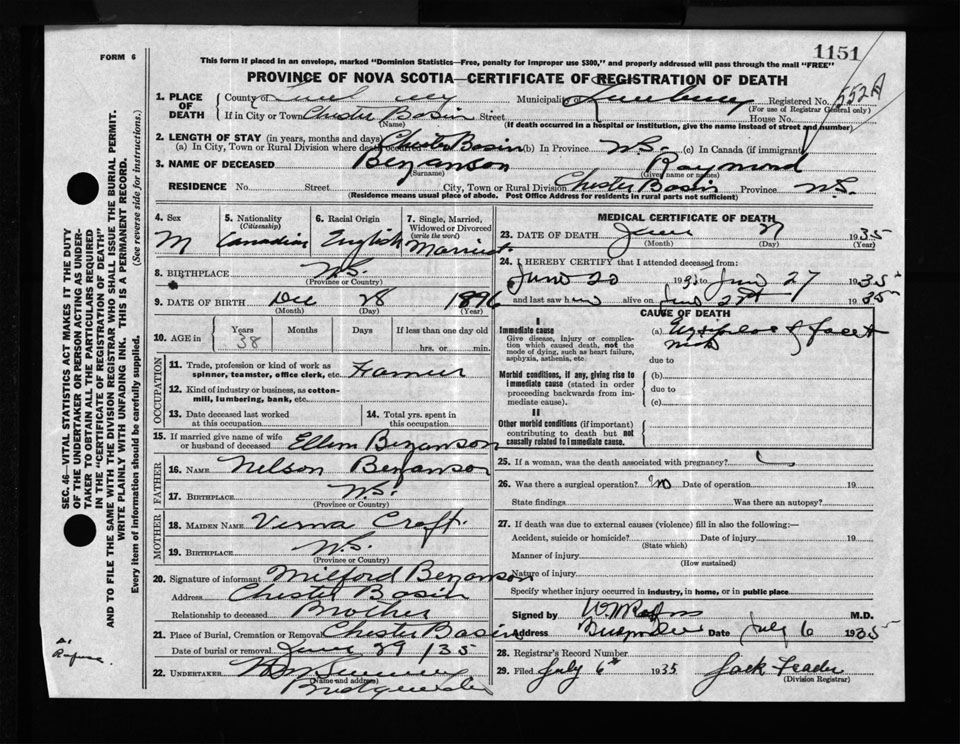 1151
FORM 6
This form if placed in an envelope, marked "Dominion Statistics—Free, penalty for improper use $300," and properly addressed will pass through the mail "FREE"
PROVINCE OF NOVA SCOTIA—CERTIFICATE OF REGISTRATION OF DEATH
552A
1. PLACE OF DEATH
County of Municipality of Lunenburg Registered No.
(For use of Registrar General only)
If in City or Town Chester Basin Street House No.
(Name) (If death occurred in a hospital or institution, give the name instead of street and number)
2. LENGTH OF STAY (in years, months and days)
(a) In City, Town or Rural Division where death occurred Chester Basin (b) In Province N.S. (c) In Canada (if immigrant)
3. NAME OF DECEASED Bezanson Raymond
(Surname) (Given name or names)
RESIDENCE No. Street City, Town or Rural Division Chester Basin Province N.S.
(Residence means usual place of abode. Post Office Address for residents in rural parts not sufficient)
4. Sex M
5. Nationality (Citizenship) Canadian
6. Racial Origin English
7. Single, Married, Widowed or Divorced (write the word) Married
8. BIRTHPLACE N.S.
(Province or Country)
9. DATE OF BIRTH Dec 28 1896
(Month) (Day) (Year)
10. AGE in Years 38 Months Days If less than one day old hrs. or min.
OCCUPATION
11. Trade, profession or kind of work as spinner, teamster, office clerk, etc. Farmer
12. Kind of industry or business, as cotton-mill, lumbering, bank, etc.
13. Date deceased last worked at this occupation
14. Total yrs. spent in this occupation
15. If married give name of wife or husband of deceased Ellen Bezanson
FATHER
16. NAME Nelson Bezanson
17. BIRTHPLACE N.S.
(Province or Country)
MOTHER
18. MAIDEN NAME Croft
19. BIRTHPLACE N.S.
(Province or Country)
20. Signature of informant Milford Bezanson
Address Chester Basin
Relationship to deceased Brother
21. Place of Burial, Cremation or Removal Chester Basin
Date of burial or removal June 29/35
22. UNDERTAKER
(Name and address)
Bridgewater
MEDICAL CERTIFICATE OF DEATH
23. DATE OF DEATH June 27 1935
(Month) (Day) (Year)
24. I HEREBY CERTIFY that I attended deceased from:
June 20 1935 to June 27 1935
and last saw h alive on June 27 1935
CAUSE OF DEATH
I
Immediate cause
Give disease, injury or complication which caused death, not the mode of dying, such as heart failure, asphyxia, asthenia, etc.
(a) Erysipelas of face &
due to
Morbid conditions, if any, giving rise to immediate cause (stated in order proceeding backwards from immediate cause).
(b)
due to
(c)
II
Other morbid conditions (if important) contributing to death but not causally related to immediate cause.
25. If a woman, was the death associated with pregnancy?
26. Was there a surgical operation? No Date of operation 19
State findings Was there an autopsy?
27. If death was due to external causes (violence) fill in also the following:—
Accident, suicide or homicide? Date of injury 19
(State which)
Manner of injury
(How sustained)
Nature of injury
Specify whether injury occurred in industry, in home, or in public place
Signed by M.D.
Address Date July 6 1935
28. Registrar's Record Number
29. Filed July 6th 1935 Jack
(Division Registrar)
SEC. 46—VITAL STATISTICS ACT MAKES IT THE DUTY
OF THE UNDERTAKER OR PERSON ACTING AS UNDER-
TAKER TO OBTAIN ALL THE PARTICULARS REQUIRED
IN THE "CERTIFICATE OF REGISTRATION OF DEATH"
AND TO FILE THE SAME WITH THE DIVISION REGISTRAR WHO SHALL ISSUE THE BURIAL PERMIT.
WRITE PLAINLY WITH UNFADING INK. THIS IS A PERMANENT RECORD.
Every item of information should be carefully supplied. (See reverse side for instructions.)